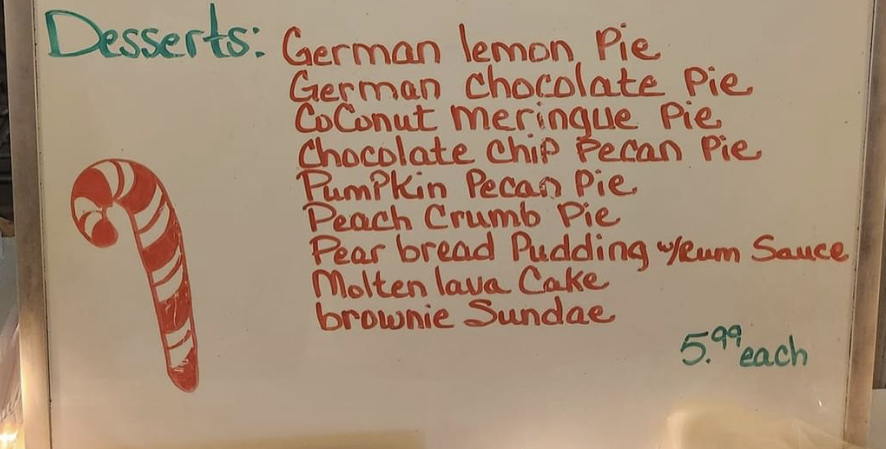 Desserts: German lemon Pie
German Chocolate Pie
CoConut meringue Pie
Chocolate Chip Pecan Pie
PumPkin Pecan Pie
Peach Crumb Pie
Pear bread Pudding w/Rum Sauce
Molten lava Cake
brownie Sundae
5.99 each